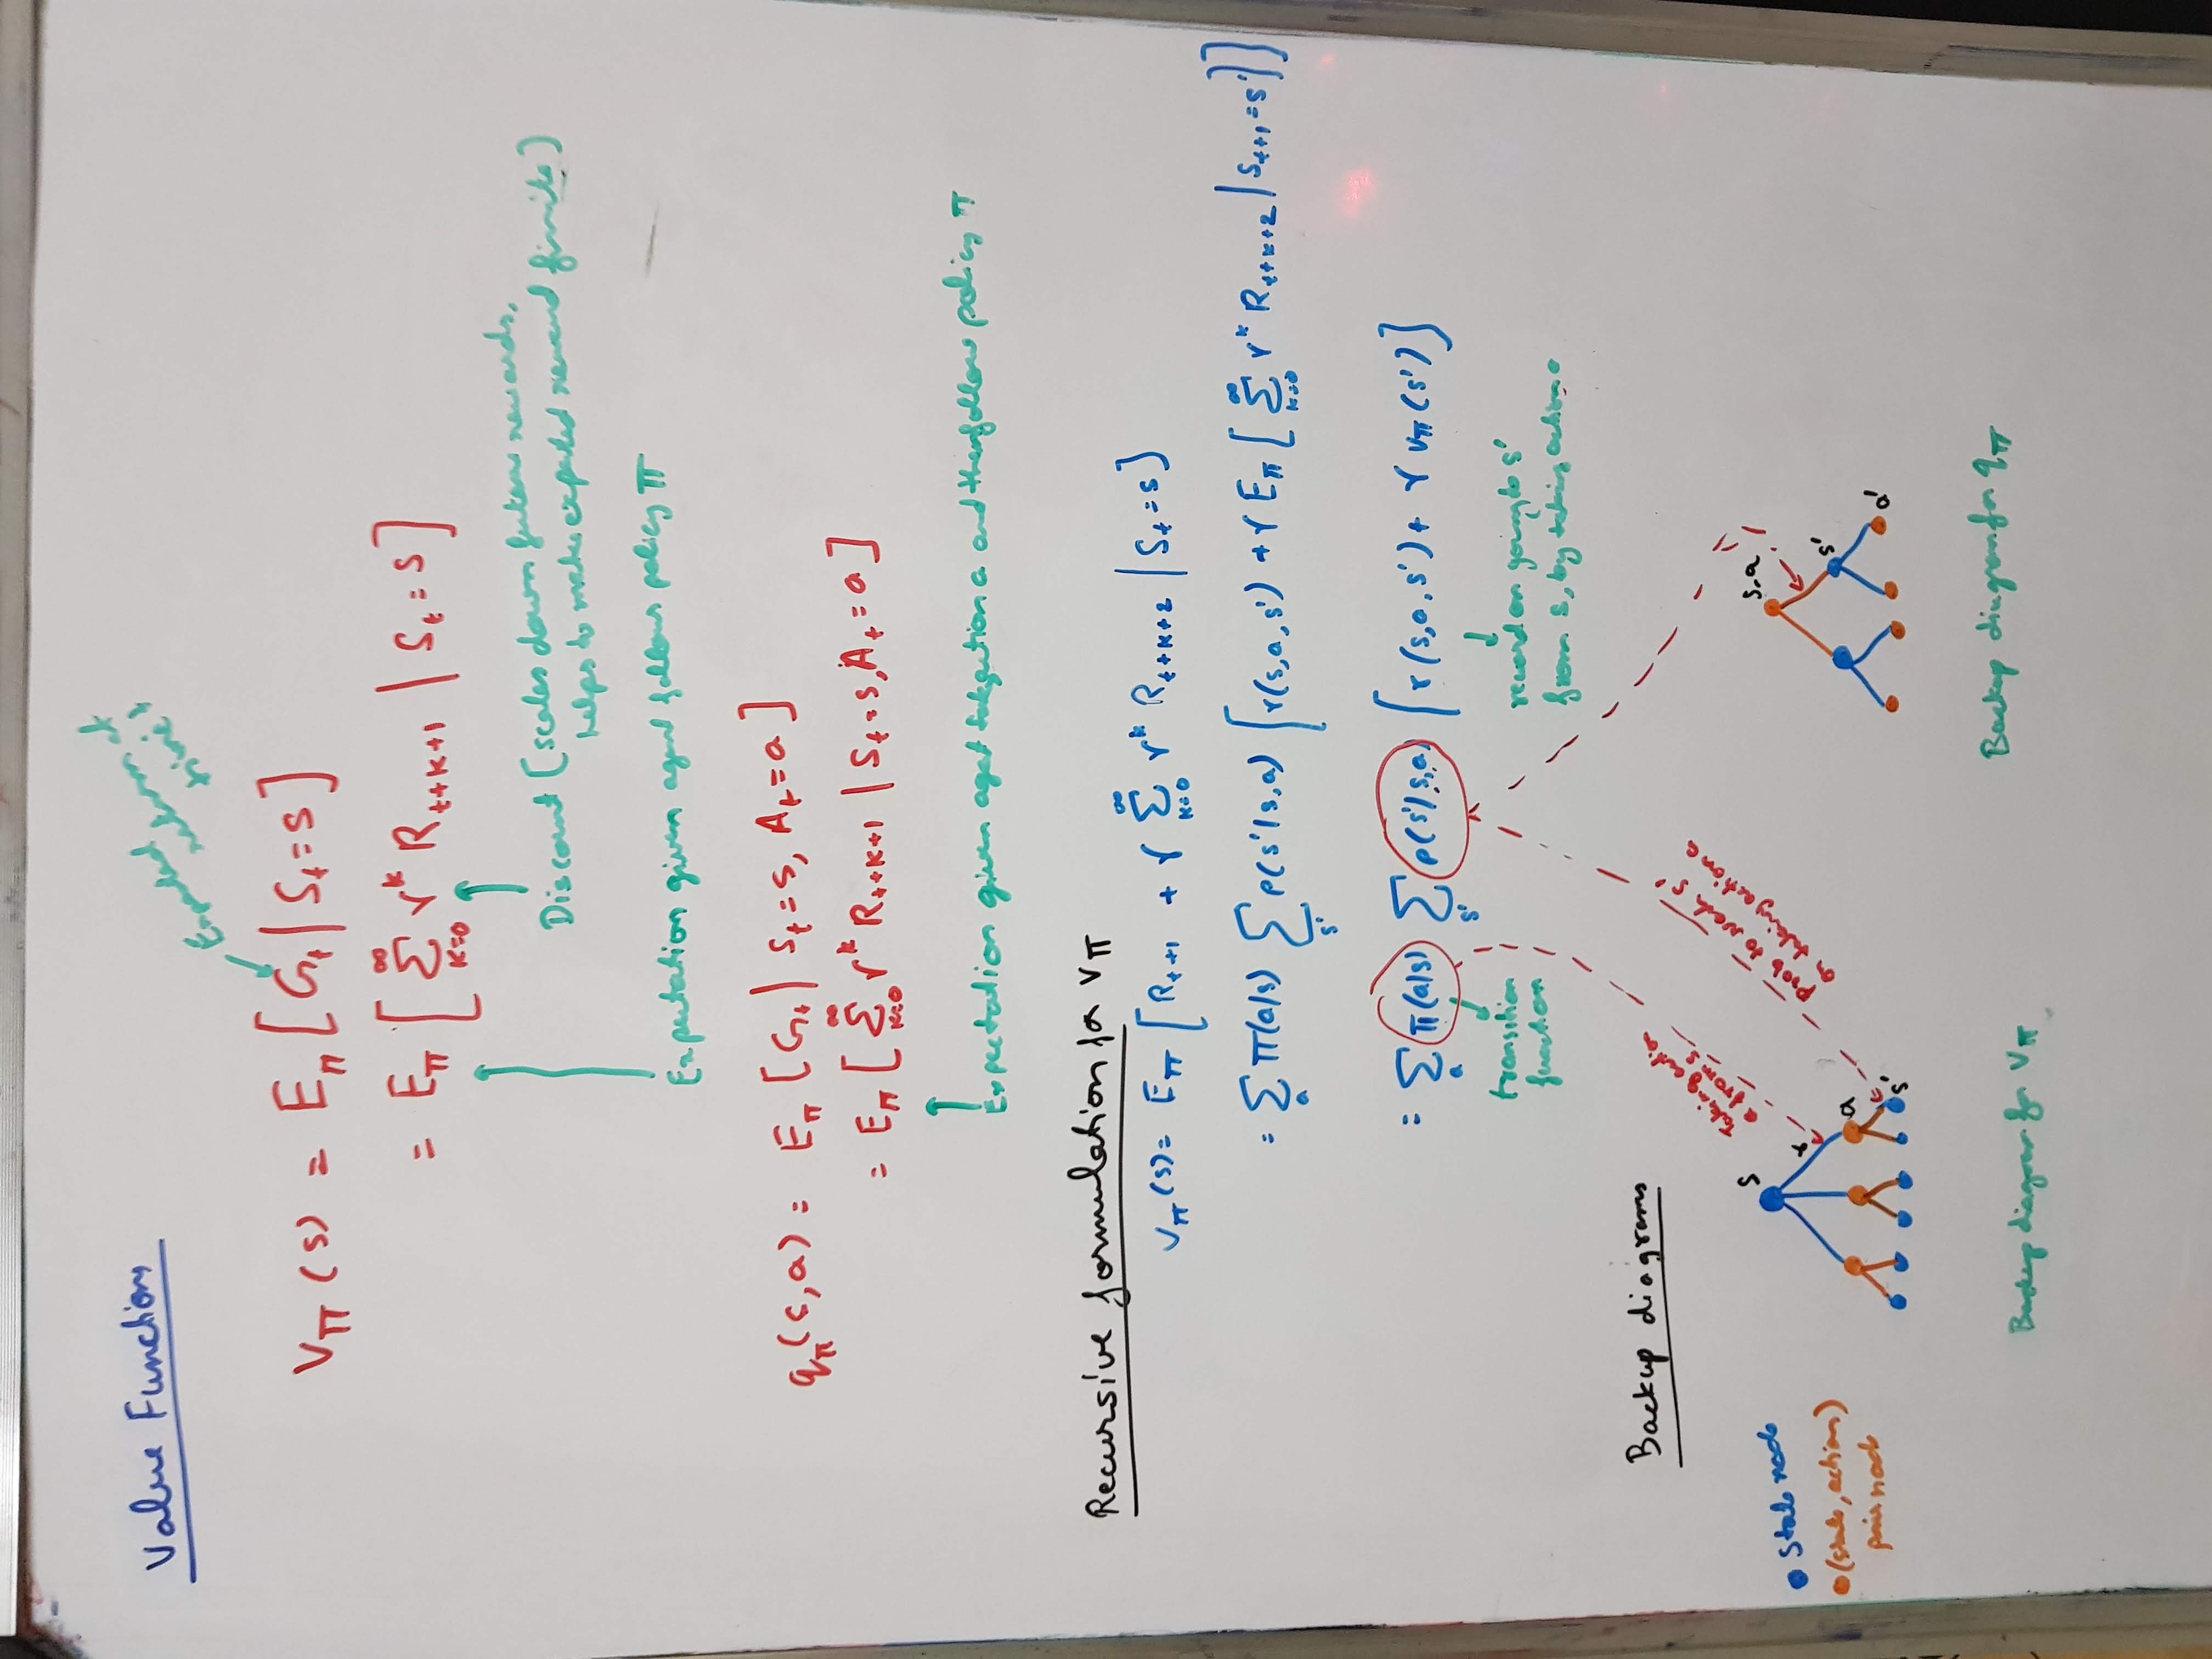 Value Functions
Expected
return at
time t
V_π(s) = E_π[G_t | S_t = s]
= E_π[∑_{k=0}^{∞} γ^k R_{t+k+1} | S_t = s]
Discount (scales down future rewards,
helps to make expected reward finite)
Expectation given agent follows policy π
q_π(s,a) = E_π[G_t | S_t = s, A_t = a]
= E_π[∑_{k=0}^{∞} γ^k R_{t+k+1} | S_t = s, A_t = a]
Expectation given agent takes action a and then follow policy π
Recursive formulation for V_π
V_π(s) = E_π[R_{t+1} + γ ∑_{k=0}^{∞} γ^k R_{t+k+2} | S_t = s]
= ∑_a π(a|s) ∑_{s'} p(s'|s,a) [r(s,a,s') + γ E_π[∑_{k=0}^{∞} γ^k R_{t+k+2} | S_{t+1} = s']]
= ∑_a π(a|s) ∑_{s'} p(s'|s,a) [r(s,a,s') + γ V_π(s')]
transition
function
reward on going to s'
from s, by taking action a
Backup diagrams
Taking action
a from s
prob to reach s'
on taking action a
State node
(state, action)
pair node
s
r
a
s'
s,a
s'
a'
Backup diagram for V_π
Backup diagram for q_π